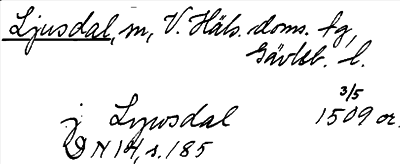 Ljusdal, m, V. Häls. doms. fg,
Gävleb. l.
3/5
j Lywsdal 1509 or.
DN 14, s. 185